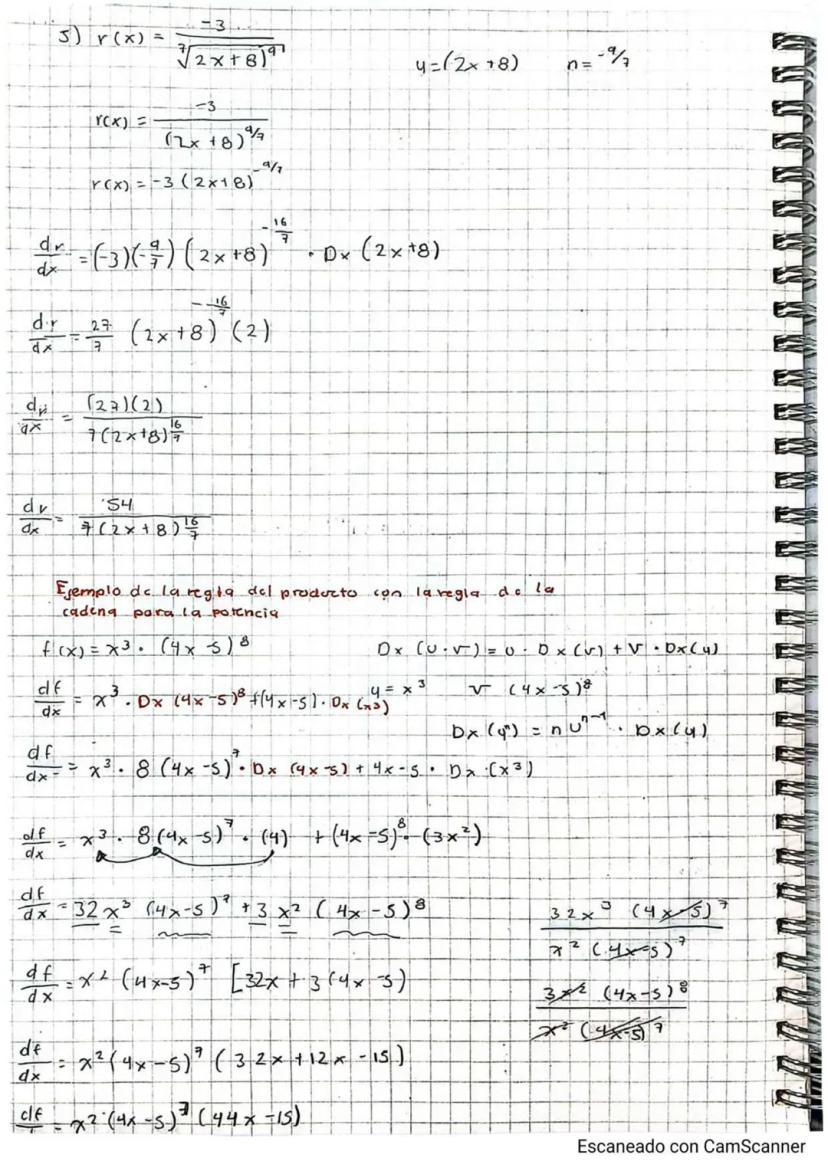 5) r(x) = -3 / ⁷√(2x+8)⁹
u=(2x+8) n=-9/7
r(x) = -3 / (2x+8)^9/7
r(x) = -3 (2x+8)^-9/7
dr/dx = (-3)(-9/7) (2x+8)^-16/7 · Dx (2x+8)
dr/dx = 27/7 (2x+8)^-16/7 (2)
dr/dx = (27)(2) / 7(2x+8)^16/7
dr/dx = 54 / 7(2x+8)^16/7
Ejemplo de la regla del producto con la regla de la
cadena para la potencia
f(x) = x³ · (4x-5)⁸
Dx (u·v) = u · Dx(v) + v · Dx(u)
df/dx = x³ · Dx (4x-5)⁸ + (4x-5) · Dx (x³)
u = x³ v (4x-5)⁸
Dx (uⁿ) = n uⁿ⁻¹ · Dx(u)
df/dx = x³ · 8 (4x-5)⁷ · Dx (4x-5) + 4x-5 · Dx · (x³)
df/dx = x³ · 8(4x-5)⁷ · (4) + (4x-5)⁸ · (3x²)
df/dx = 32x³ (4x-5)⁷ + 3x² (4x-5)⁸
32x³ (4x-5)⁷ / x² (4x-5)⁷
df/dx = x² (4x-5)⁷ [32x + 3(4x-5)
3x² (4x-5)⁸ / x² (4x-5)⁷
df/dx = x² (4x-5)⁷ (32x + 12x - 15)
df/ = x² (4x-5)⁷ (44x-15)
Escaneado con CamScanner